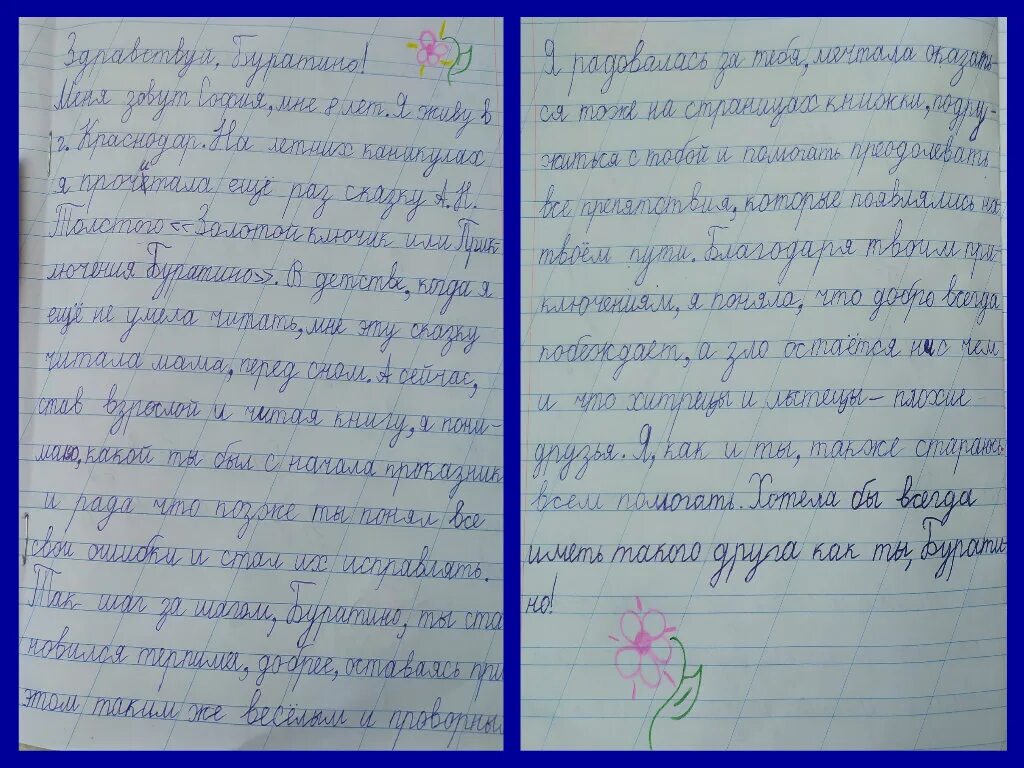 Здравствуй, Буратино!
Меня зовут София, мне 8 лет. Я живу в
г. Краснодар. На летних каникулах
я прочитала ещё раз сказку А.Н.
Толстого <<Золотой ключик или Прик-
лючения Буратино>>. В детстве, когда я
ещё не умела читать, мне эту сказку
читала мама, перед сном. А сейчас,
став взрослой и читая книгу, я пони-
маю, какой ты был с начала проказник
и рада что позже ты понял все
свои ошибки и стал их исправлять.
Так шаг за шагом, Буратино, ты ста
новился терпима, добрее, оставаясь при
этом таким же весёлым и проворны
Я радовалась за тебя, мечтала оказать-
ся тоже на страницах книжки, подру-
житься с тобой и помогать преодолевать
все препятствия, которые появлялись на
твоём пути. Благодаря твоим при-
ключениям, я поняла, что добро всегда
побеждает, а зло остаётся ни с чем
и что хитрецы и льстецы - плохие
друзья. Я, как и ты, также стараюсь
всем помогать. Хотела бы всегда
иметь такого друга как ты, Бурати-
но!